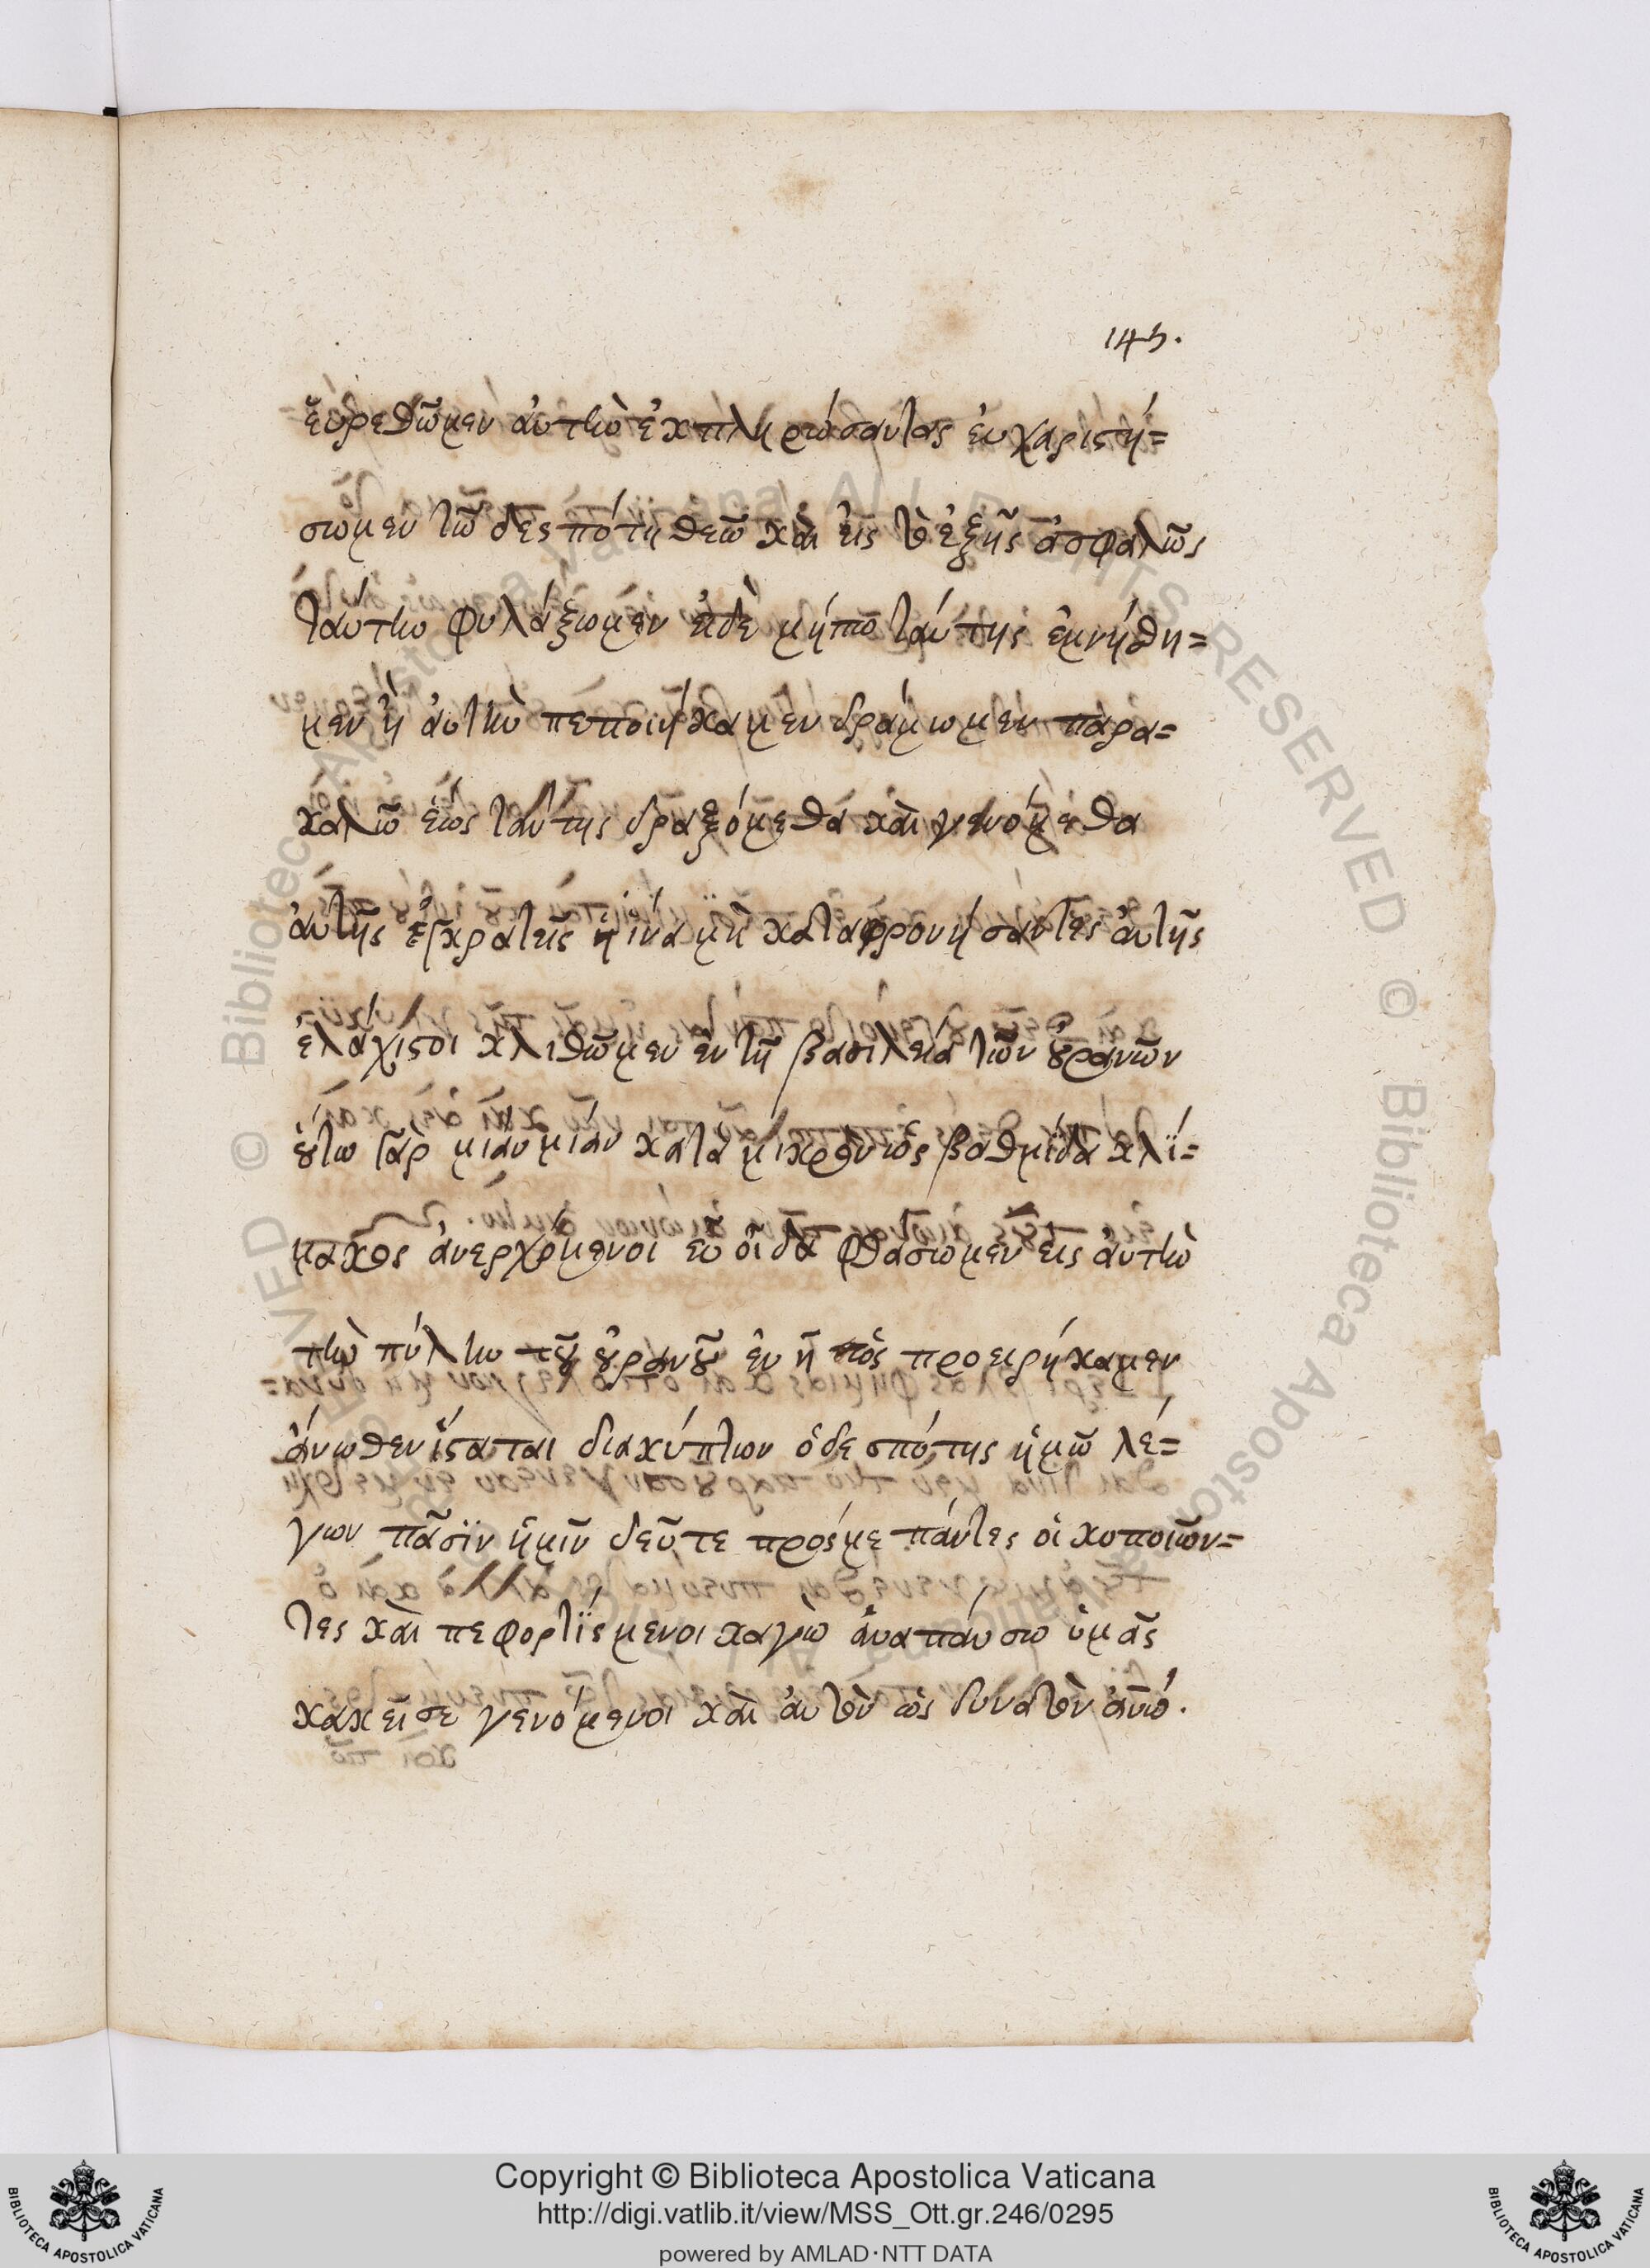 145.
εὑρεθῶμεν ἀυτὴν ἐκπληρώσαντας ἐυχαριστή=
σωμεν τῶ δεσπότη θεῶ καὶ εἰς τὸ ἑξῆς ἀσφαλῶς
ταύτην φυλάξωμεν ἐιδὲ μήπω ταύτης ἐμνήθη=
μεν ἢ ἀυτὴν πεποιήκαμεν δράμωμεν παρα=
καλῶ ἕως ταύτης δραξόμεθα καὶ γενόμεθα
ἀυτῆς ἐγκρατεῖς ἢ ἵνα μὴ καταφρονήσαντες ἀυτῆς
ἐλάχιστοι κλιθῶμεν ἐν τῆ βασιλεία τῶν ὀυρανῶν
ὅυτω γὰρ μίαν μίαν κατὰ μικρὸν ὡς βαθμίδα κλί=
μακος ἀνερχόμενοι ἐυ οἶδα φθάσωμεν εἰς ἀυτὴν
τὴν πύλην τοῦ ὀυρανοῦ ἐν ἧ ὡς προειρήκαμεν
ἄνωθεν ἵσταται διακύπτων ὁ δεσπότης ἡμῶν λέ=
γων πᾶσϊν ἡμῖν δεῦτε πρός με πάντες οἱ κοποιῶν=
τες καὶ πεφορτϊσμενοι καγὼ ἀναπάυσω ὑμᾶς
κακεῖσε γενόμενοι καὶ ἀυτὸν ὡς δυνατὸν
Copyright © Biblioteca Apostolica Vaticana
http://digi.vatlib.it/view/MSS_Ott.gr.246/0295
powered by AMLAD·NTT DATA
BIBLIOTECA APOSTOLICA VATICANA
BIBLIOTECA APOSTOLICA VATICANA